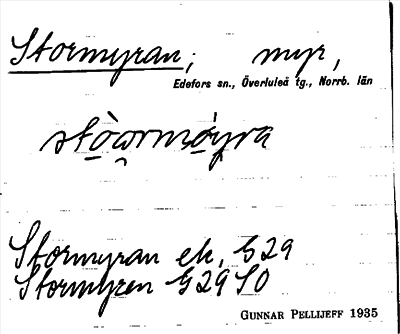 Stormyran; myr,
Edefors sn., Överluleå tg., Norrb. län
Stormyran ek. G29
Stormyren G29 SO
GUNNAR PELLIJEFF 1935